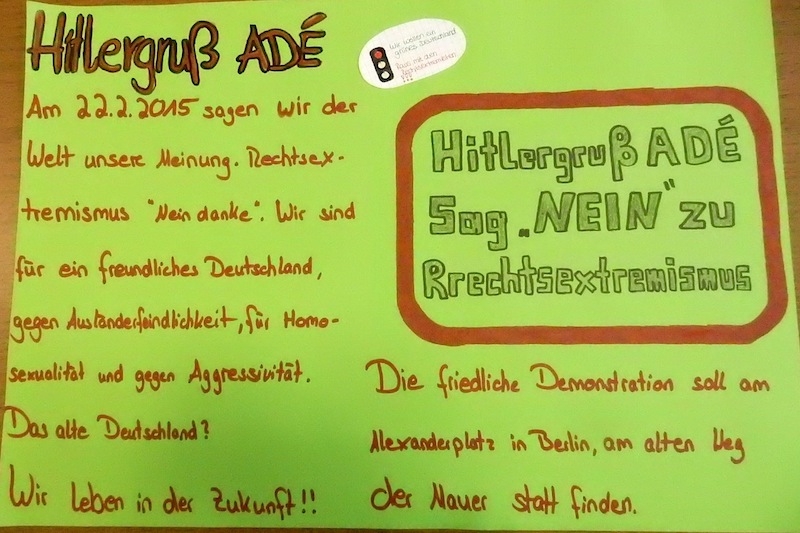 Hitlergruß ADÉ
Am 22.2.2015 sagen wir der
Welt unsere Meinung. Rechtsex-
tremismus "Nein danke". Wir sind
für ein freundliches Deutschland,
gegen Ausländerfeindlichkeit, für Homo-
sexualität und gegen Aggressivität.
Das alte Deutschland?
Wir leben in der Zukunft!!
Wir wollen ein
grünes Deutschland
Raus mit den
!!!
Hitlergruß ADÉ
Sag „NEIN" zu
Rrechtsextremismus
Die friedliche Demonstration soll am
Alexanderplatz in Berlin, am alten Weg
der Mauer statt finden.